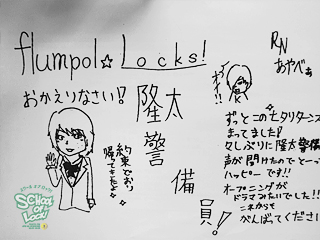 flumpol☆Locks!
RN
あやべぇ
おかえりなさい!
隆太
警
備
員!
約束どおり
帰ってきたよ
ずっとこの
まってました!
久しぶりに隆太警備
声が聞けたのでとっ
ハッピーです!!
オープニングが
ドラマみたいでした!!
これからも
がんばってください
SCHOOL
OF
LOCK!